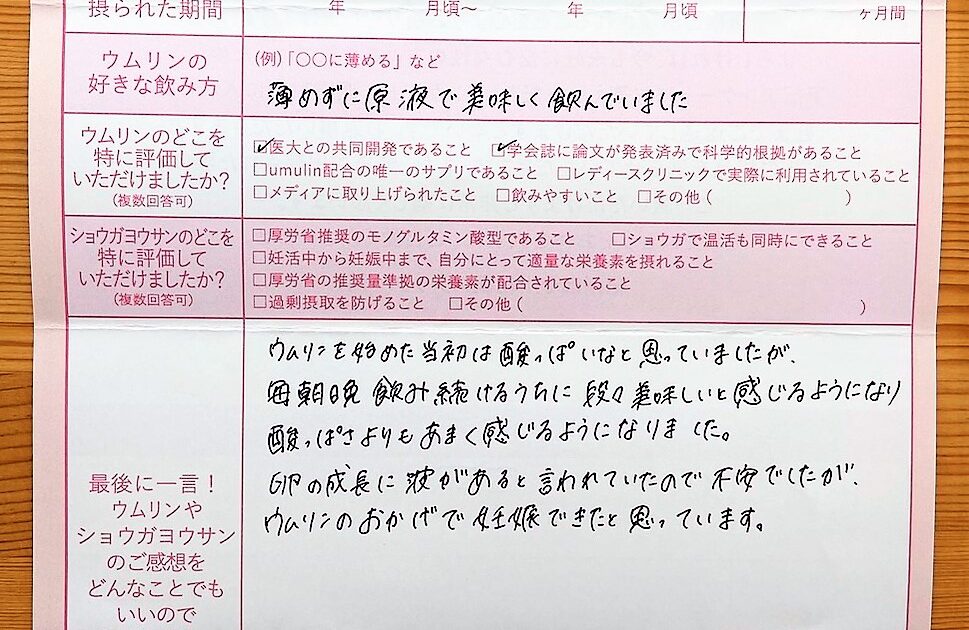 摂られた期間
年 月頃～ 年 月頃
ヶ月間
ウムリンの
好きな飲み方
(例)「○○に薄める」など
薄めずに原液で美味しく飲んでいました
ウムリンのどこを
特に評価して
いただけましたか?
(複数回答可)
☑医大との共同開発であること ☑学会誌に論文が発表済みで科学的根拠があること
□umulin配合の唯一のサプリであること □レディースクリニックで実際に利用されていること
□メディアに取り上げられたこと □飲みやすいこと □その他( )
ショウガヨウサンのどこを
特に評価して
いただけましたか?
(複数回答可)
□厚労省推奨のモノグルタミン酸型であること □ショウガで温活も同時にできること
□妊活中から妊娠中まで、自分にとって適量な栄養素を摂れること
□厚労省の推奨量準拠の栄養素が配合されていること
□過剰摂取を防げること □その他( )
最後に一言!
ウムリンや
ショウガヨウサン
のご感想を
どんなことでも
いいので
ウムリンを始めた当初は酸っぱいなと思っていましたが、
毎朝晩飲み続けるうちに段々美味しいと感じるようになり
酸っぱさよりもあまく感じるようになりました。
卵の成長に波があると言われていたので不安でしたが、
ウムリンのおかげで妊娠できたと思っています。